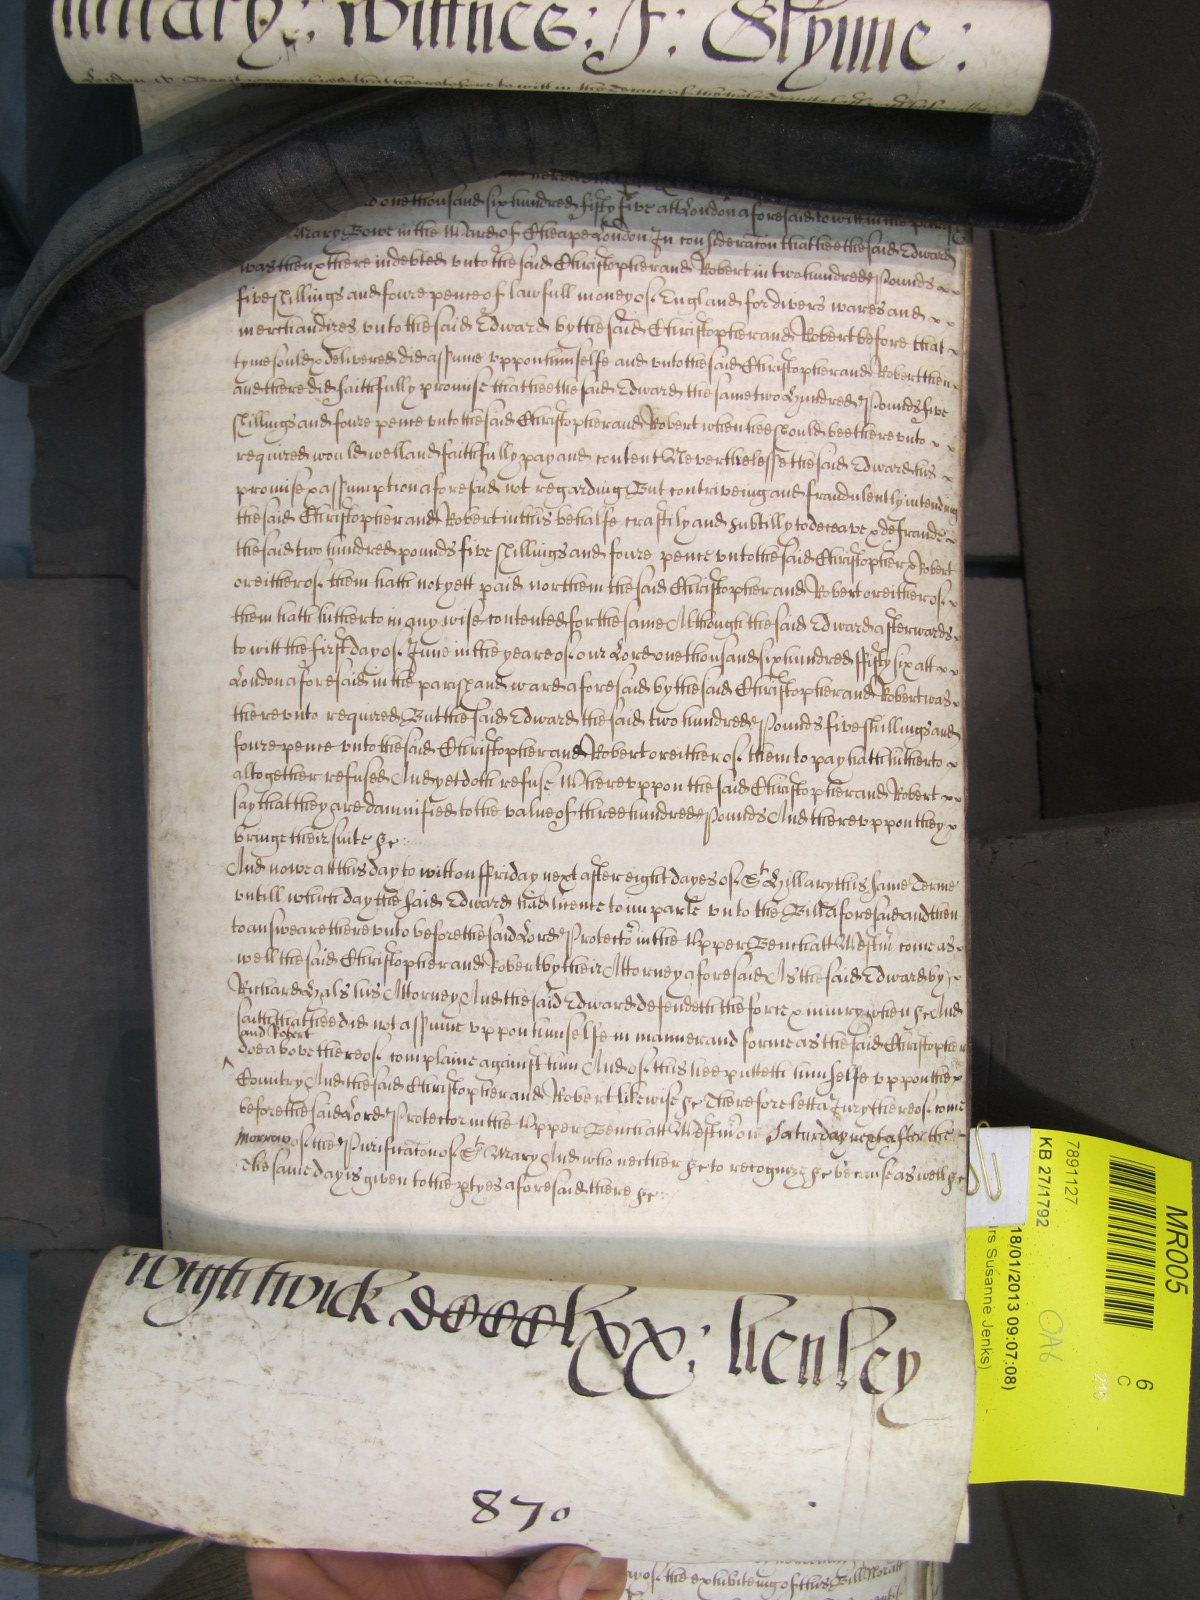 Hillary: Wittnes: J: Glynne:
one thousand six hundred fifty five att London aforesaid to witt in the parish
Mary Bowe in the Ward of Cheape London In consideracon that hee the said Edward
was then & there indebted unto the said Christopher and Robert in two hundred Pounds
five shillings and foure pence of lawfull money of England for divers wares and
merchandizes unto the said Edward by the said Christopher and Robert before that
tyme sould & delivered did assume uppon himselfe and unto the said Christopher and Robert then
and there did faithfully promise that hee the said Edward the same two Hundred Pounds five
shillings and foure pence unto the said Christopher and Robert when hee should bee thereunto
required would well and faithfully pay and content Neverthelesse the said Edward his
promise & assumption aforesaid not regarding But contriveing and fraudulently intending
the said Christopher and Robert in this behalfe craftily and subtilly to deceave & defraude
the said two hundred pounds five shillings and foure pence unto the said Christopher & Robert
or either of them hath not yett paid nor them the said Christopher and Robert or either of
them hath hitherto in any wise contented for the same Although the said Edward afterwards
to witt the first day of June in the yeare of our Lord one thousand six hundred fifty six att
London aforesaid in the parish and ward aforesaid by the said Christopher and Robert was
thereunto required But the said Edward the said two hundred Pounds five shillings and
foure pence unto the said Christopher and Robert or either of them to pay hath hitherto
altogether refused And yet doth refuse Whereuppon the said Christopher and Robert
say that they are damnified to the value of three hundred Pounds And thereuppon they
bringe their suite &c
And nowe at this day to witt on ffriday next after eight dayes of St Hillary this same Terme
untill which day the said Edward had licence to imparle unto the Bill aforesaid and then
to answeare thereunto before the said Lord Protector in the Upper Bench att Westm come as
well the said Christopher and Robert by their Attorney aforesaid As the said Edward by
Richard Hals his Attorney And the said Edward defendeth the force & iniury when &c And
saith that hee did not assume uppon himselfe in manner and forme as the said Christopher
and Robert
doe above thereof complaine against him And of this hee putteth himselfe uppon the
Country And the said Christopher and Robert likewise &c Therefore lett a Jury thereof come
before the said Lord Protector in the Upper Bench att Westm on Saturday next after the
morrow of the Purificacon of St Mary And who neither &c to recognize &c because as well &c
The same day is given to the ptyes aforesaid there &c
Wightwick dccclxx: Henley
870
MR005
6
C
7891127
KB 27/1792
18/01/2013 09:07:08)
rs Susanne Jenks)